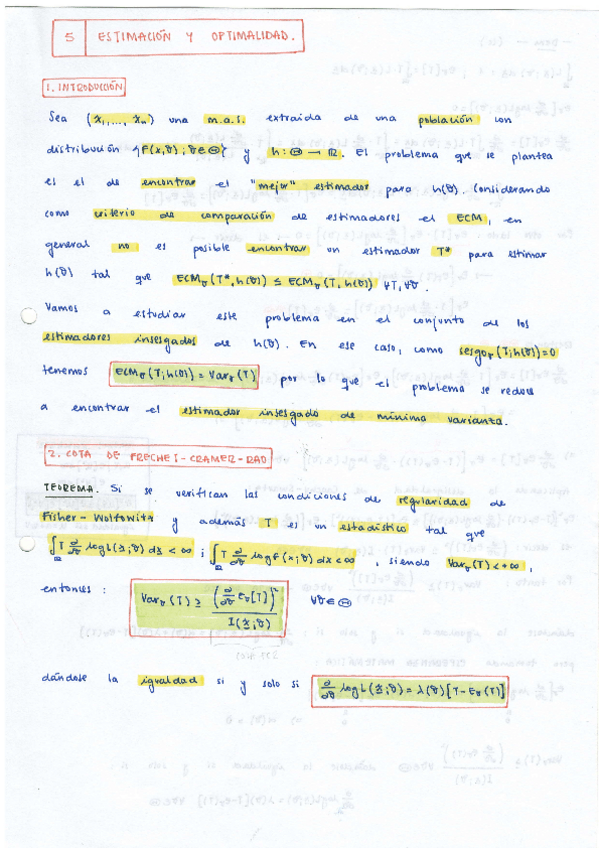 5 ESTIMACIÓN Y OPTIMALIDAD.
1. INTRODUCCIÓN
Sea (X₁,..., Xₙ) una m.a.s. extraida de una población con
distribución {F(x,θ); θ∈Θ} y h: Θ → ℝ. El problema que se plantea
es el de encontrar el "mejor" estimador para h(θ). Considerando
como criterio de comparación de estimadores el ECM, en
general no es posible encontrar un estimador T* para estimar
h(θ) tal que ECM_θ(T*, h(θ)) ≤ ECM_θ(T, h(θ)) ∀T, ∀θ.
Vamos a estudiar este problema en el conjunto de los
estimadores insesgados de h(θ). En ese caso, como sesgo_θ(T; h(θ))=0
tenemos ECM_θ(T; h(θ)) = Var_θ(T) por lo que el problema se reduce
a encontrar el estimador insesgado de mínima varianza.
2. COTA DE FRECHET-CRAMER-RAO
TEOREMA. Si se verifican las condiciones de regularidad de
Fisher-Wolfowitz y además T es un estadístico tal que
∫ T ∂/∂θ log L(x; θ) dx < ∞ i ∫ T ∂/∂θ log f(x; θ) dx < ∞, siendo Var_θ(T) < +∞,
entonces: Var_θ(T) ≥ (∂/∂θ E_θ[T])² / I(x; θ) ∀θ∈Θ
dándose la igualdad si y solo si ∂/∂θ log L(x; θ) = λ(θ)[T - E_θ(T)]